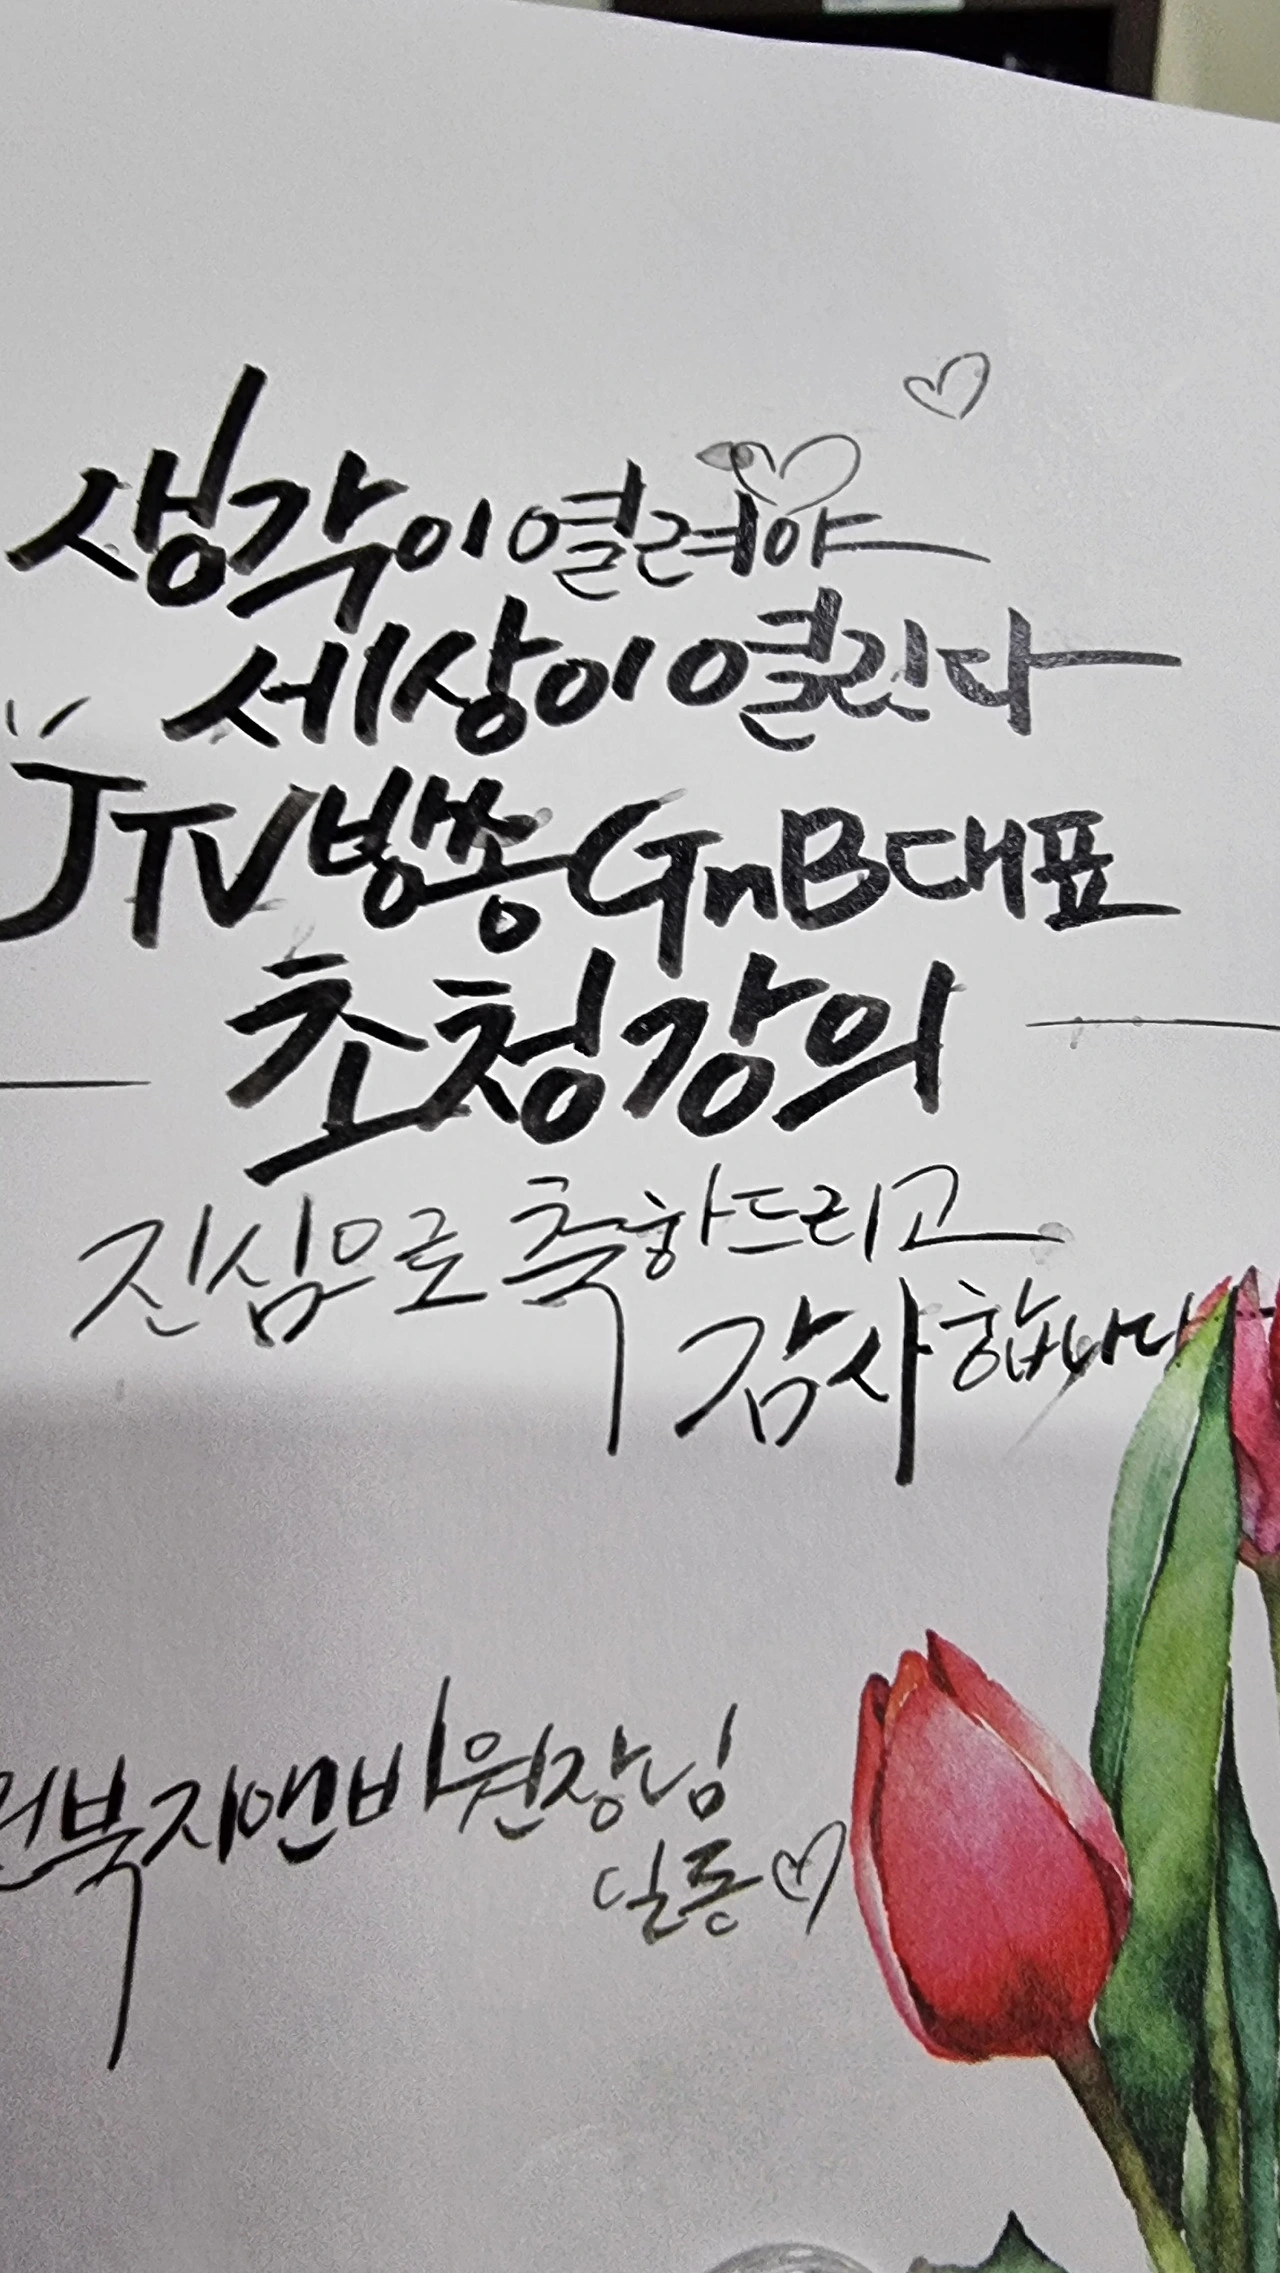 생각이 열려야
세상이 열린다
JTV방송 GnB대표
초청강의
진심으로 축하드리고
감사합니다
북지앤비원장님
일동